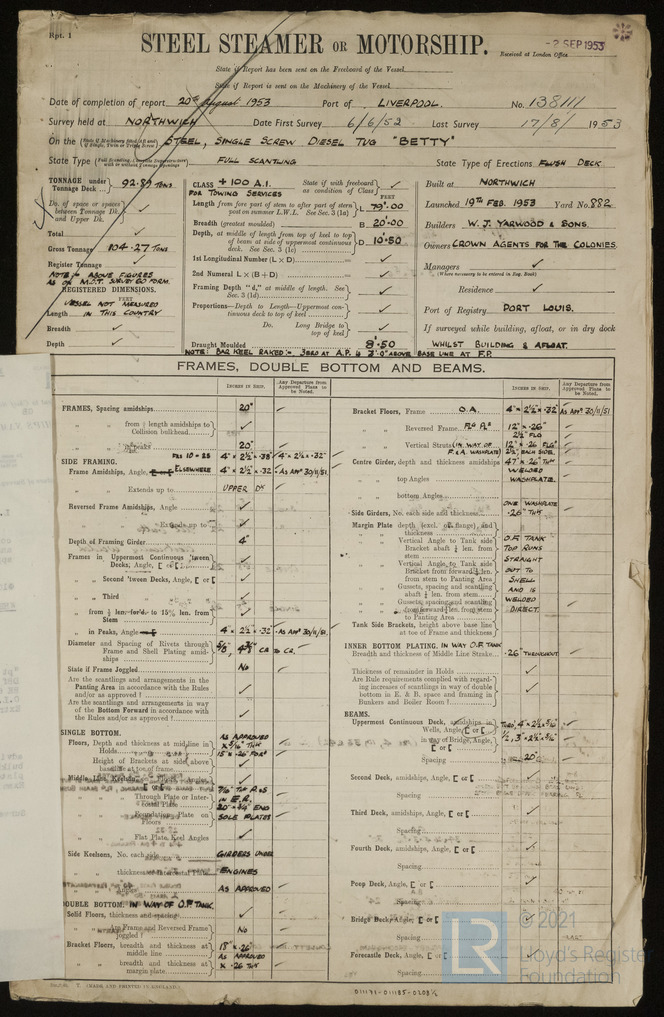 Rpt. 1
STEEL STEAMER OR MOTORSHIP.
-2 SEP 1953
Received at London Office
State if Report has been sent on the Freeboard of the Vessel
State if Report is sent on the Machinery of the Vessel
Date of completion of report 20th August 1953 Port of LIVERPOOL. No. 138111
Survey held at NORTHWICH Date First Survey 6/6/52 Last Survey 17/8/ 1953
On the STEEL, SINGLE SCREW DIESEL TUG "BETTY"
State Type FULL SCANTLING State Type of Erections FLUSH DECK
TONNAGE under Tonnage Deck ... 92.89 TONS
Do. of space or spaces between Tonnage Dk. and Upper Dk.
Total
Gross Tonnage 104.27 TONS
Register Tonnage
NOTE:- ABOVE FIGURES
AS ON M.O.T. SURVEY 60 FORM.
REGISTERED DIMENSIONS.
FEET
VESSEL NOT MEASURED
Length IN THIS COUNTRY
Breadth
Depth
CLASS + 100 A.1. State if with freeboard as condition of Class
FOR TOWING SERVICES
FEET
Length from fore part of stem to after part of stern post on summer L.W.L. See Sec. 3 (1a) L 79.00
Breadth (greatest moulded) B 20.00
Depth, at middle of length from top of keel to top of beam at side of uppermost continuous deck. See Sec. 3 (1c) D 10.50
1st Longitudinal Number (L × D)
2nd Numeral L × (B + D)
Framing Depth "d," at middle of length. See Sec. 3 (1d)
Proportions—Depth to Length—Uppermost continuous deck to top of keel
Do. Long Bridge to top of keel
Draught Moulded 8.50
NOTE: BAR KEEL RAKED :- ZERO AT A.P. TO 3'.0" ABOVE BASE LINE AT F.P.
Built at NORTHWICH
Launched 19TH FEB. 1953 Yard No. 882
Builders W. J. YARWOOD & SONS.
Owners CROWN AGENTS FOR THE COLONIES.
Managers
(Where necessary to be entered in Reg. Book)
Residence
Port of Registry PORT LOUIS.
If surveyed while building, afloat, or in dry dock
WHILST BUILDING & AFLOAT.
FRAMES, DOUBLE BOTTOM AND BEAMS.
INCHES IN SHIP.
Any Departure from Approved Plans to be Noted.
FRAMES, Spacing amidships 20"
from ⅕ length amidships to Collision bulkhead
in peaks 20"
SIDE FRAMING.
Frame Amidships, Angle, ELSEWHERE 4" × 2½" × .32 AS APPD 30/11/51.
Extends up to UPPER DK
Reversed Frame Amidships, Angle
Extends up to
Depth of Framing Girder 4"
Frames in Uppermost Continuous 'tween Decks, Angle, [ or [
Second 'tween Decks, Angle, [ or [
Third
from ⅕ len. for'd. to 15% len. from Stem
in Peaks, Angle 4" × 2½" × .32" AS APPD 30/11/51.
Diameter and Spacing of Rivets through Frame and Shell Plating amidships
State if Frame Joggled NO
Are the scantlings and arrangements in the Panting Area in accordance with the Rules and/or as approved?
Are the scantlings and arrangements in way of the Bottom Forward in accordance with the Rules and/or as approved?
SINGLE BOTTOM.
Floors, Depth and thickness at mid line in Holds AS APPROVED
Height of Brackets at side above base line at toe of frame
Through Plate or Intercostal Plate
Foundation Plate on Floors SOLE PLATES
Flat Plate Keel Angles
Side Keelsons, No. each side GIRDERS UNDER
ENGINES
AS APPROVED
DOUBLE BOTTOM. IN WAY OF O.F. TANK.
Solid Floors, thickness and spacing
Are Frame and Reversed Frame joggled? NO
Bracket Floors, breadth and thickness at middle line 18" × .26"
breadth and thickness at margin plate AS APPROVED × .26" THK
INCHES IN SHIP.
Any Departure from Approved Plans to be Noted.
Bracket Floors, Frame O.A. 4" × 2½" × .32" AS APPD 30/11/51
Reversed Frame 12" × .26"
2½" FLG
Vertical Struts (IN WAY OF F. & A. WASHPLATE) 12" × .26 FLG
2½" EACH SIDE.
Centre Girder, depth and thickness amidships 47" × .26" THK
top Angles WELDED WASHPLATE.
bottom Angles
Side Girders, No. each side and thickness ONE WASHPLATE .26" THK
Margin Plate depth (excl. of flange), and thickness
Vertical Angle to Tank side Bracket abaft ¼ len. from stem
Vertical Angle to Tank side Bracket from forward ¼ len. from stem to Panting Area
Gussets, spacing and scantling abaft ¼ len. from stem
Gussets, spacing and scantling from forward ¼ len. from stem to Panting Area
O.F. TANK
TOP RUNS
STRAIGHT
OUT TO
SHELL
AND IS
WELDED
DIRECT.
Tank Side Brackets, height above base line at toe of Frame and thickness
INNER BOTTOM PLATING. IN WAY O.F. TANK
Breadth and thickness of Middle Line Strake .26" THROUGHOUT
Thickness of remainder in Holds
Are Rule requirements complied with regarding increases of scantlings in way of double bottom in E. & B. space and framing in Bunkers and Boiler Room?
BEAMS.
Uppermost Continuous Deck, amidships in Wells, Angle, [ or [
in way of Bridge, Angle, [ or [
Spacing 20"
Second Deck, amidships, Angle, [ or [
Spacing
Third Deck, amidships, Angle, [ or [
Spacing
Fourth Deck, amidships, Angle, [ or [
Spacing
Poop Deck, Angle, [ or [
Spacing
Bridge Deck, Angle, [ or [
Spacing
Forecastle Deck, Angle, [ or [
Spacing
(MADE AND PRINTED IN ENGLAND.)
011171-011185-0208½
LR
© 2021
Lloyd's Register
Foundation